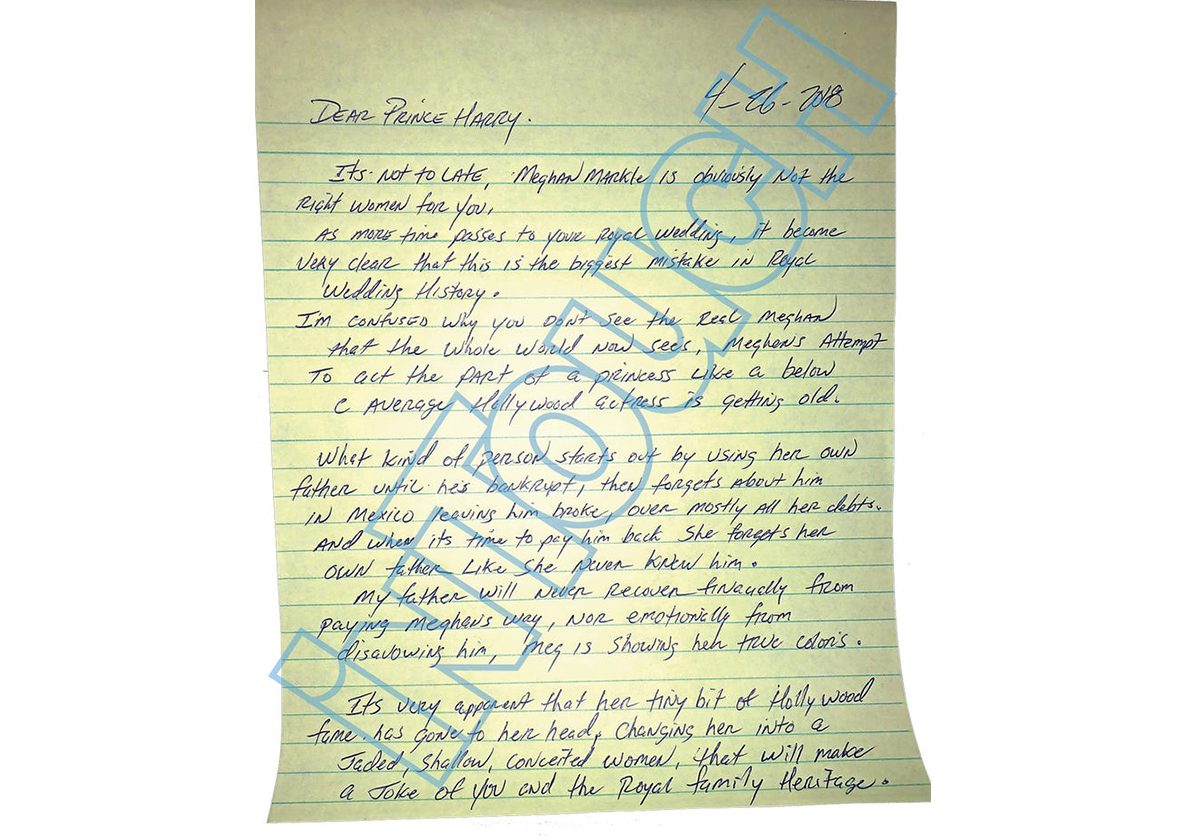 4-26-2018
DEAR PRINCE HARRY.
Its NOT TO LATE, MEGHAN MARKLE is obviously Not the
Right women for you.
As MORE time passes to your Royal wedding, it become
very clear that this is the biggest mistake in Royal
Wedding History.
I'm confused why you DON't see the Real Meghan
that the whole world Now sees, Meghans Attempt
To act the PART of a princess Like a below
C AVERAGE Hollywood actress is getting old.
What kind of person starts out by using her own
father until he's bankrupt, then forgets About him
IN Mexico leaving him broke, over mostly all her debts.
And when its time to pay him back She forgets her
OWN father Like She Never KNew him.
My father will Never Recover finacially from
paying Meghans way, NOR emotionally from
disavowing him, Meg is showing her TRUE colors.
It's very apparent that her tiny bit of Hollywood
fame has gone to her head, Changing her into a
Jaded, Shallow, conceited women, that will make
a Joke of you and the Royal family Heritage.
INTOUCH